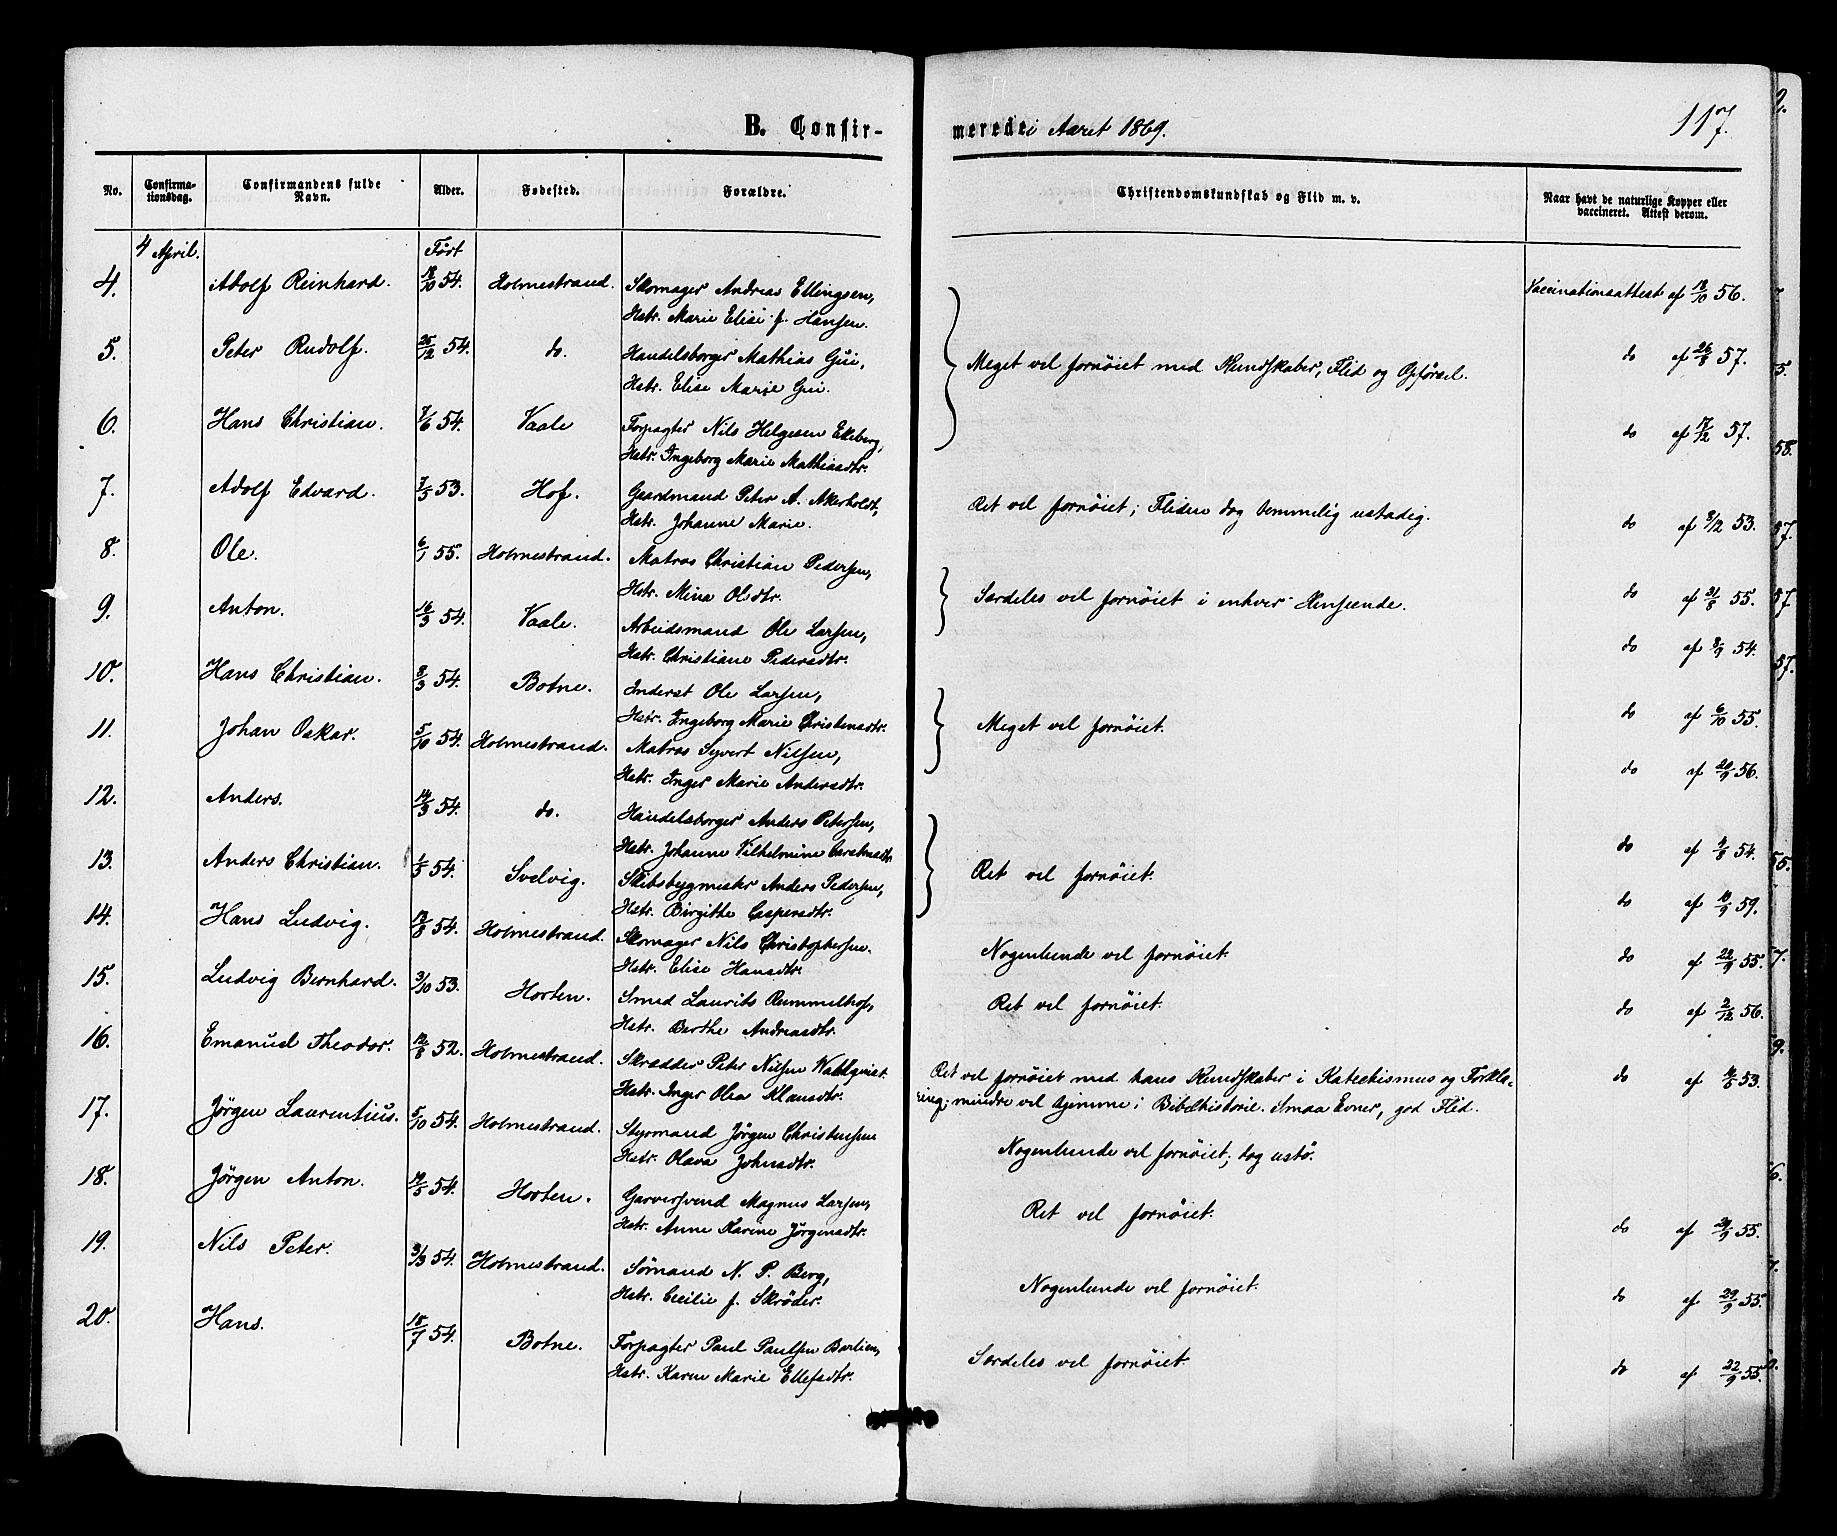 B. Confirmerede i Aaret 1869. 117.
No. Confirmationsdag. Confirmandens fulde Navn. Alder. Fødested. Forældre. Christendomskundskab og Flid m. v. Naar havt de naturlige Kopper eller vaccineret. Attest derom.
4 April. Født
4. Adolf Reinhard. 18/10 54. Holmestrand. Skomager Andreas Ellingsen, Vaccinationsattest af 18/10 56.
Hstr. Marie Elise f. Hansen.
5. Peter Rudolf. 25/12 54. do. Handelsborger Mathias Gui, Meget vel fornøiet med Kundskaber, Flid og Opførsel. do af 26/8 57.
Hstr. Elise Marie Gui.
6. Hans Christian. 7/6 54. Vaale Forpagter Nils Helgesen Ekeberg, do af 17/2 57.
Hstr. Ingeborg Marie Mathiasdtr.
7. Adolf Edvard. 7/5 53. Hof. Gaardmand Peter A. Akerholdt, Ret vel fornøiet; Fliden dog temmelig ustadig. do af 8/12 53.
Hstr. Johanne Marie.
8. Ole. 6/1 55. Holmestrand. Matros Christian Pedersen, Særdeles vel fornøiet i enhver Henseende. do af 31/8 55.
Hstr. Mina Olsdtr.
9. Anton. 16/3 54. Vaale. Arbeidsmand Ole Larsen, do af 8/9 54.
Hstr. Christiane Pedersdtr.
10. Hans Christian. 8/3 54. Botne. Inderst Ole Larsen, Meget vel fornøiet. do af 6/10 55.
Hstr. Ingeborg Marie Christensdtr.
11. Johan Oskar. 5/10 54. Holmestrand. Matros Syvert Nilsen, do af 20/9 56.
Hstr. Inger Marie Andersdtr.
12. Anders. 14/3 54. do. Handelsborger Anders Petersen, do af 9/8 54.
Hstr. Johanne Vilhelmine
13. Anders Christian. 1/5 54. Svelvig. Skibsbygmester Anders Pedersen, Ret vel fornøiet. do af 10/9 59.
Hstr. Birgitte Caspersdtr.
14. Hans Ludvig. 13/8 54. Holmestrand. Skomager Nils Christophersen. Nogenlunde vel fornøiet. do af 22/9 55.
Hstr. Elise Hansdtr.
15. Ludvig Bernhard. 3/10 53. Horten. Smed Laurits Rummelhof, Ret vel fornøiet. do af 2/12 56.
Hstr. Berthe Andreasdtr.
16. Emanuel Theodor. 12/8 52. Holmestrand. Skrædder Peter Nilsen Wahlqvist. Ret vel fornøiet med hans Kundskaber i Katechismus og Forkla- do af 53.
Hstr. Inger Olea Klausdtr. ring; mindre vel hjemme i Bibelhistorie. Smaa Evner, god Flid.
17. Jørgen Laurentius. 5/10 54. Holmestrand. Styrmand Jørgen Christensen Nogenlunde vel fornøiet; dog ustø.
Hstr. Olava Johnsdtr.
18. Jørgen Anton. 19/5 54. Horten. Garversvend Magnus Larsen, Ret vel fornøiet. do af 55.
Hstr. Anne Karine Jørgensdtr.
19. Nils Peter. 3/3 54. Holmestrand. Sømand N. P. Berg, Nogenlunde vel fornøiet. do af 29/9 55.
Hstr. Cecilie f. Skrøder.
20. Hans. 18/7 54. Botne. Forpagter Paul Paulsen Berlien, Særdeles vel fornøiet. do af 22/9 55.
Hstr. Karen Marie Ellefsdtr.